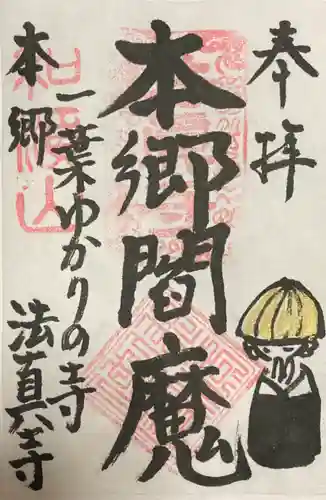 奉拝
本郷閻魔
本郷
一葉ゆかりの寺
法真寺